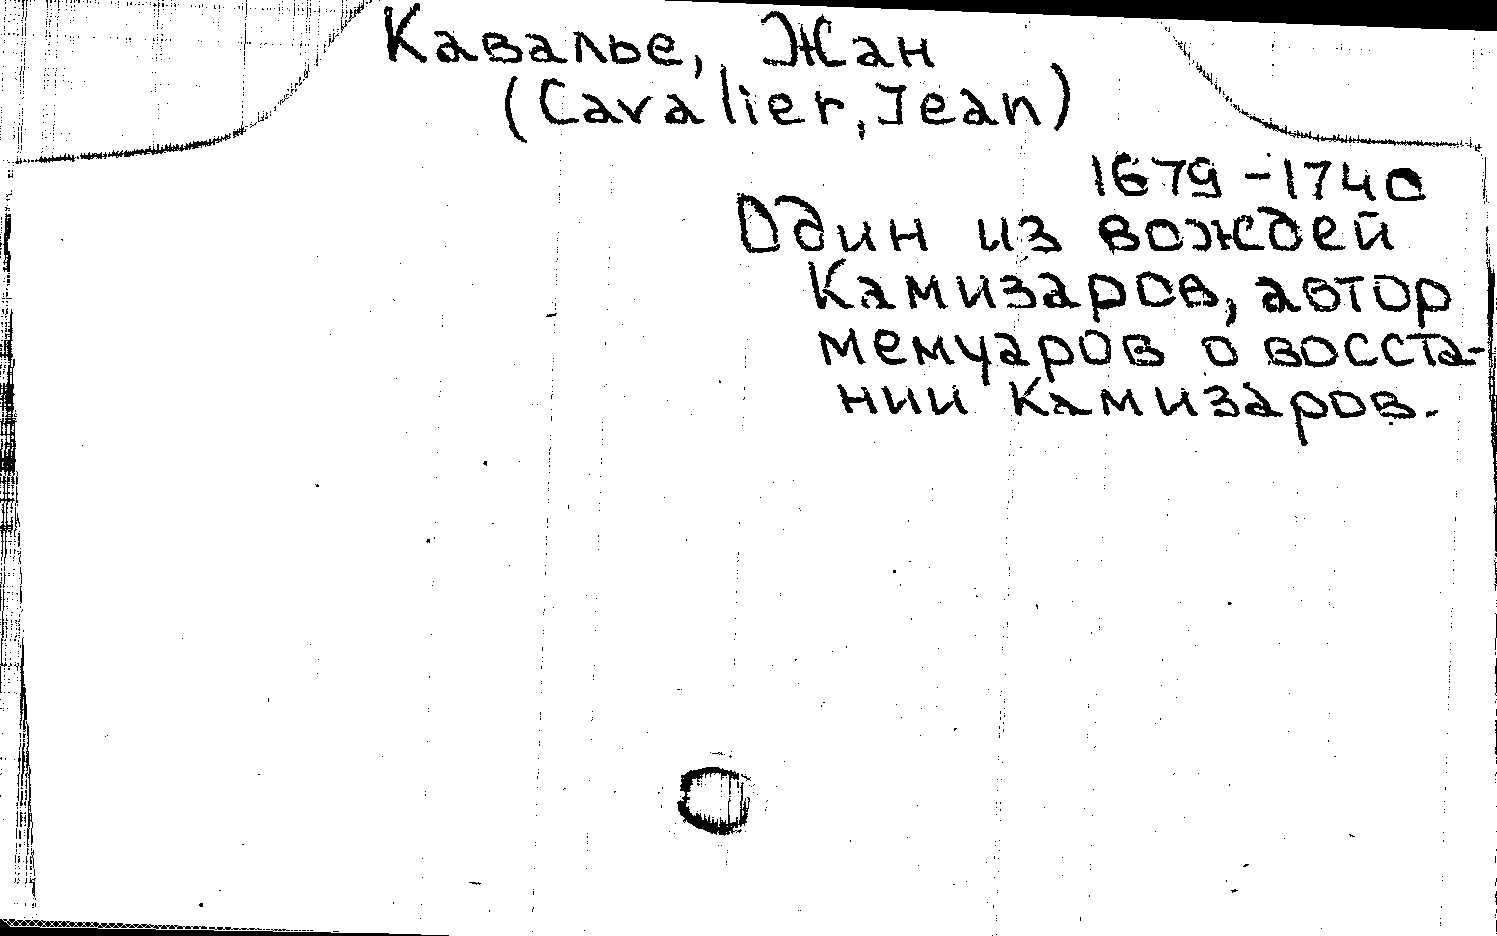 Кавалье, Жан
(Cavalier, Jean)
1679-1740
Один из вождей
Камизаров, автор
мемуаров о восста-
нии Камизаров.